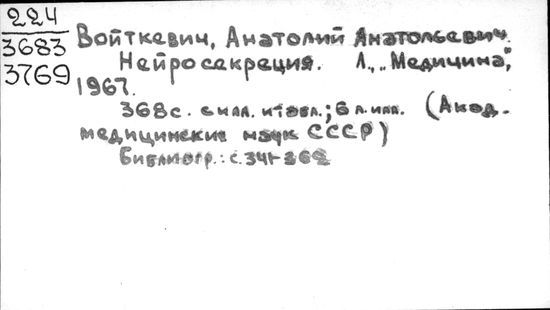 224
3683
3769
Войткевич, Анатолий Анатольевич.
Нейросекреция. Л., „Медицина",
1967.
368 с. с илл. и табл.; 6 л. илл. (Акад.
медицинских наук СССР)
Библиогр.: с. 341-362